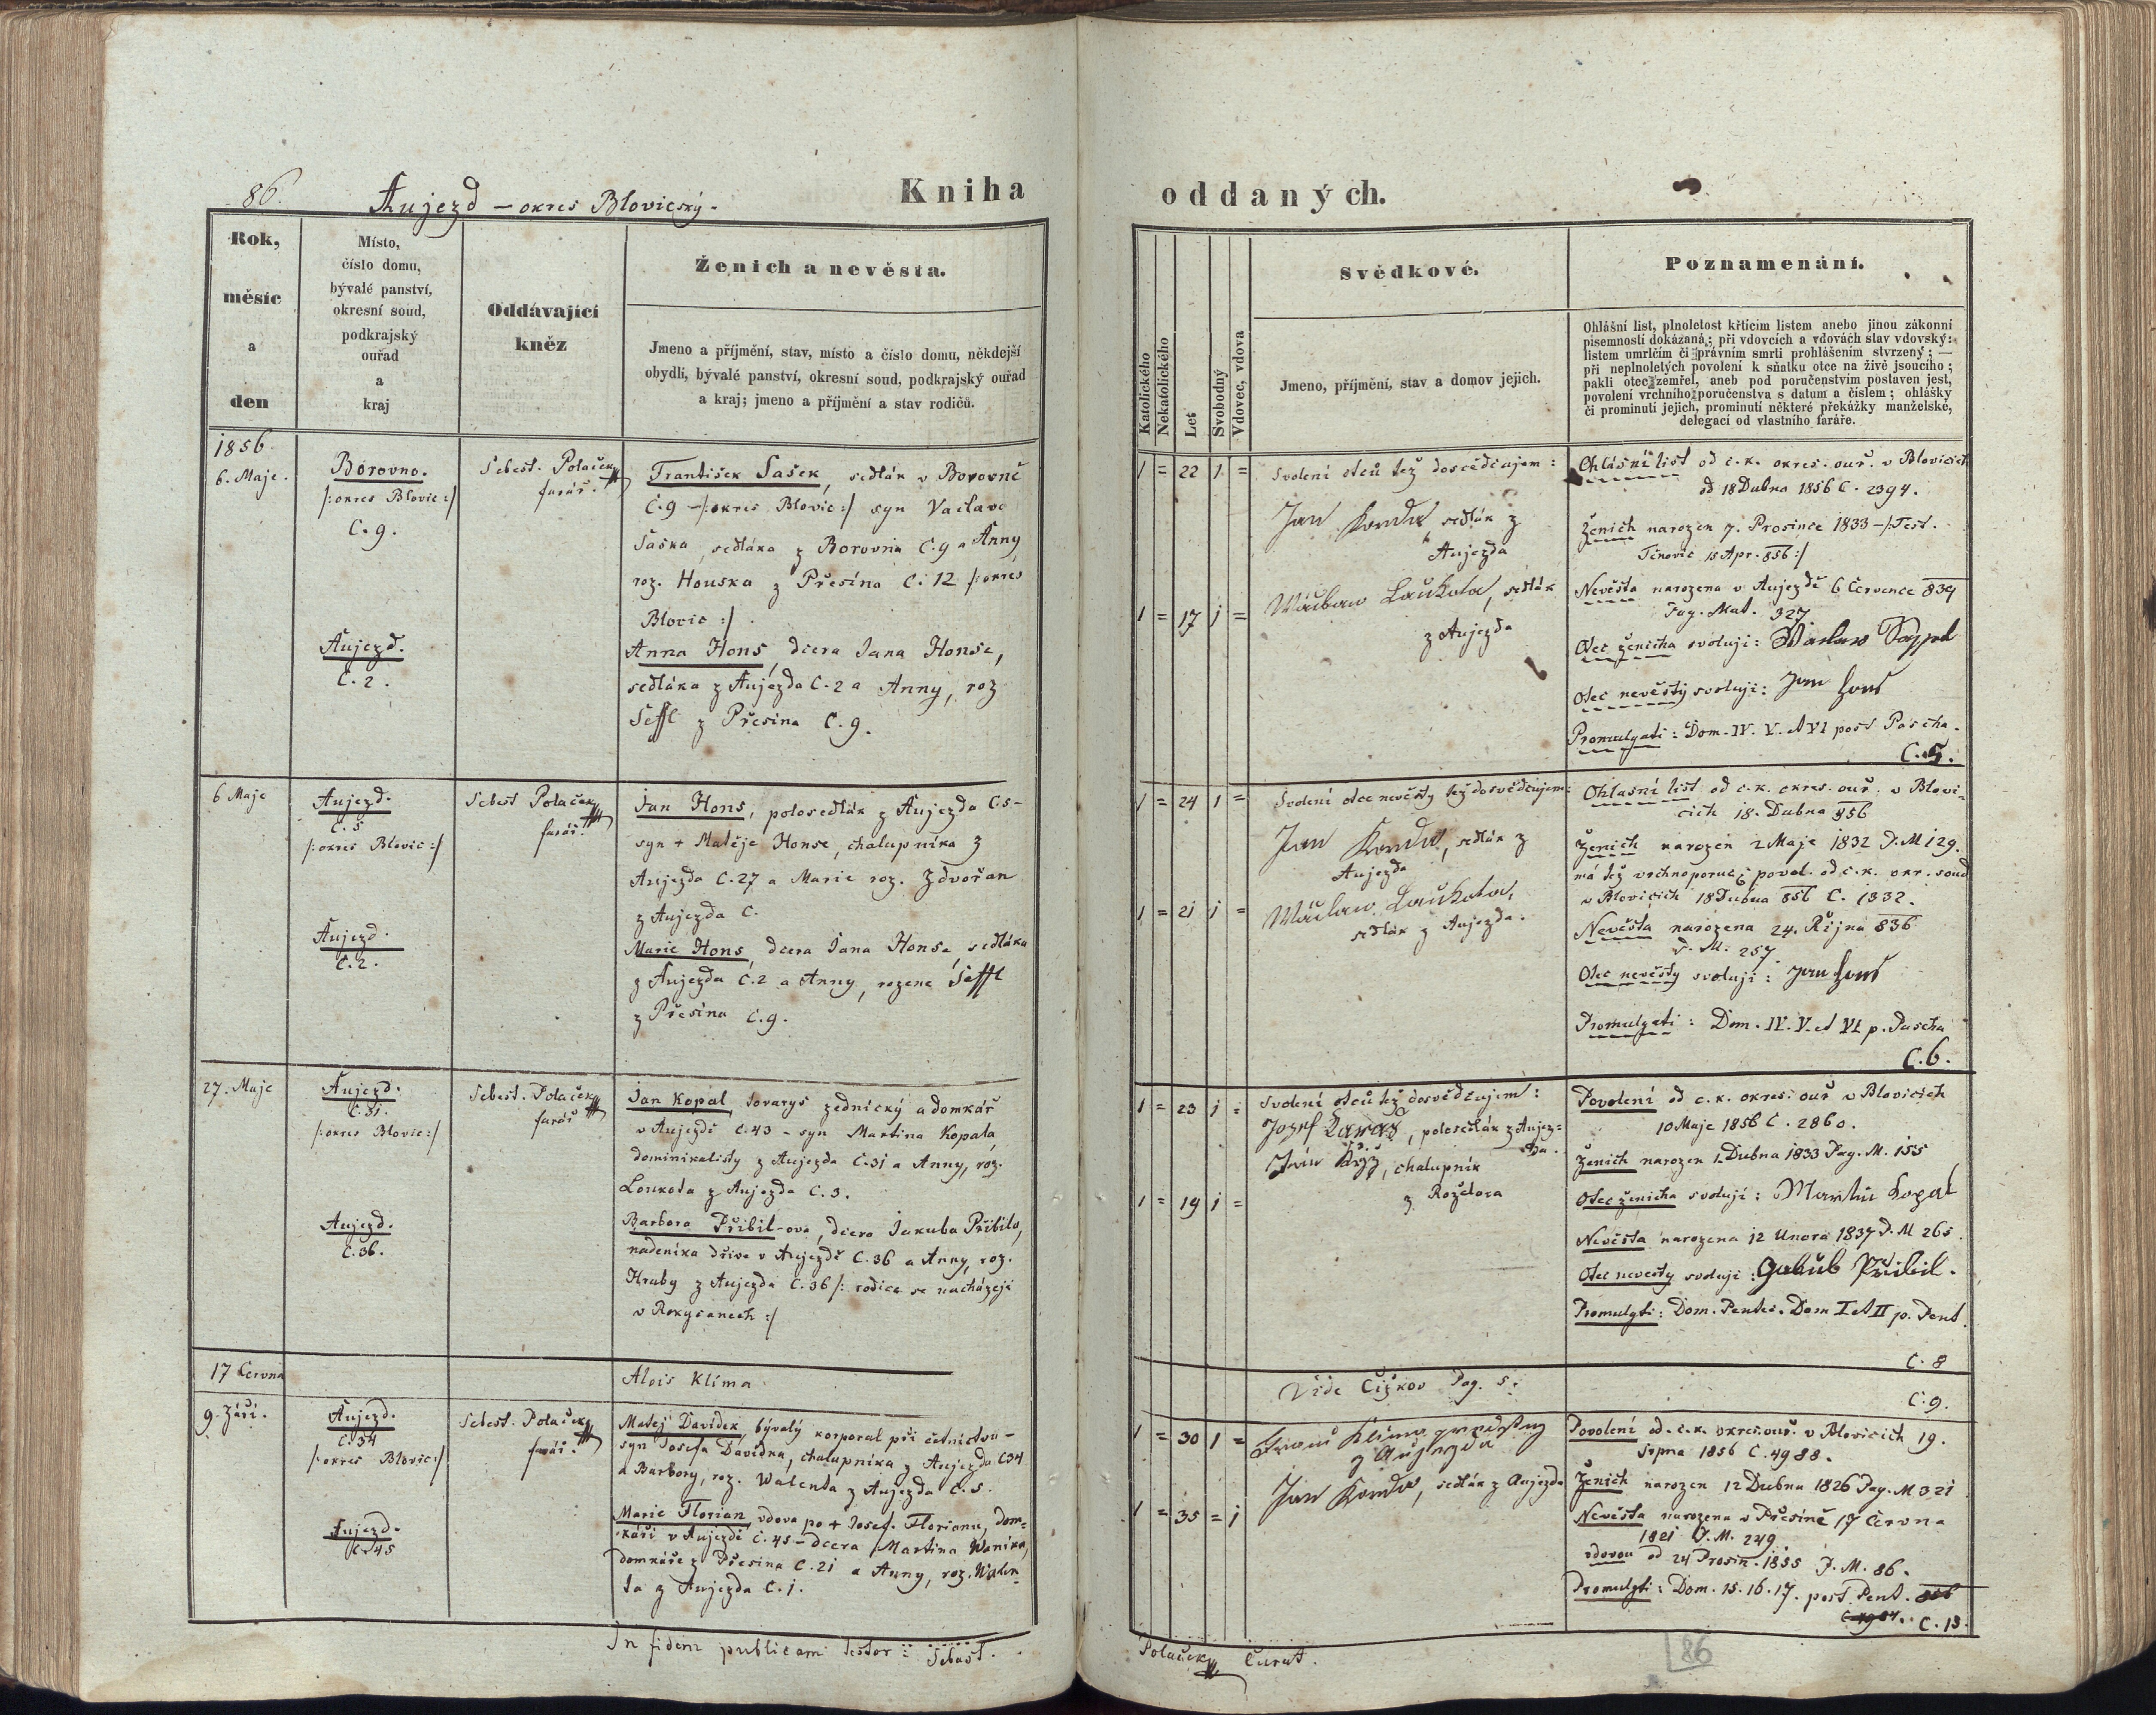 86.
Aujezd – okres Blovický.
Kniha
Rok,
měsíc
a
den
Místo,
číslo domu,
bývalé panství,
okresní soud,
podkrajský
ouřad
a
kraj
Oddávající
kněz
Ženich a nevěsta.
Jmeno a příjmění, stav, místo a číslo domu, někdejší
obydlí, bývalé panství, okresní soud, podkrajský ouřad
a kraj; jmeno a příjmění a stav rodičů.
1856
6. Maje.
Borovno.
/: okres Blovic :/
C. 9.
Aujezd.
C. 2.
Sebest. Polaček
farář.
František Sašek, sedlák v Borovně
C. 9 – /: okres Blovic :/ syn Vaclava
Saška, sedláka z Borovna C. 9 a Anny
roz. Houska z Přesína C. 12 /: okres
Blovic :/
Anna Hons, dcera Jana Honse,
sedláka z Aujezda C. 2 a Anny, roz
Šeffl z Přesina C. 9.
6 Maje
Aujezd.
C. 5
/: okres Blovic :/
Aujezd.
C. 2.
Sebest Polaček
farář.
Jan Hons, polosedlák z Aujezda C. 5 –
syn + Matěje Honse, chalupníka z
Aujezda C. 27 a Marie roz. Zdvořan
z Aujezda C.
Marie Hons, dcera Jana Honse, sedláka
z Aujezda C. 2 a Anny, rozene Šeffl
z Přesina C. 9.
27. Maje
Aujezd.
C. 31.
/: okres Blovic :/
Aujezd.
C. 36.
Sebest. Polaček
farář
Jan Kopal, tovaryš zednický a domkář
v Aujezdě C. 43 – syn Martina Kopala
dominikalisty z Aujezda C. 31 a Anny, roz.
Loukota z Aujezda C. 3.
Barbora Přibil-ova, dcera Jakuba Přibila,
nadeníka dříve v Aujezdě C. 36 a Anny, roz.
Hruby z Aujezda C. 36 /: rodice se nacházejí
v Rokycanech :/
17 Června
Alois Klíma
9. Září.
Aujezd.
C. 34
/: okres Blovic :/
Aujezd.
C. 45
Sebest. Polaček
farář.
Matej Davidek, bývalý korporal při četnictvu –
syn Josefa Davidka, chalupníka z Aujezda C. 34
a Barbory, roz. Walenta z Aujezda C. 5.
Marie Florian, vdova po + Josef. Florianu, dom=
káři v Aujezdě C. 45 – dcera Martina Waníka,
domkáře z Přesina C. 21 a Anny, roz. Walen-
ta z Aujezda C. 1.
In fidem publicam testor: Sebast.
oddaných.
Katolického
Nekatolického
Let
Svobodný
Vdovec, vdova
Svědkové.
Jmeno, příjmění, stav a domov jejich.
Poznamenání.
Ohlášní list, plnoletost křtícim listem anebo jinou zákonní
písemností dokázaná; při vdovcích a vdovách stav vdovský:
listem umrlčím či právním smrti prohlášením stvrzený; —
při neplnoletých povolení k sňatku otce na živě jsoucího;
pakli otec zemřel, aneb pod poručenstvím postaven jest,
povolení vrchního poručenstva s datum a číslem; ohlášky
či prominutí jejich, prominutí některé překážky manželské,
delegací od vlastního faráře.
1 = 22 1 =
1 = 17 1 =
Svolení otců též dosvědčujem:
Jan Konda sedlák z
Aujezda
Wáclaw Laukota, sedlák
z Aujezda
Ohlásní list od c. k. okres. ouř. v Blovicich
od 18 Dubna 1856 C. 2394.
Ženich narozen 7. Prosince 1833 – /: Test.
Těnovic 15 Apr. 856 :/
Nevěsta narozena v Aujezdě 6 Července 839
Pag. Mat. 327
Otec ženicha svoluji:
Otec nevěsty svoluji: Jan Hons
Promulgati: Dom. IV. V. et VI post Pascha.
C. 5.
1 = 24 1 =
1 = 21 1 =
Svolení otce nevěsty též dosvědčujem:
Jan Konda, sedlák z
Aujezda
Wáclaw Laukota,
sedlák z Aujezda.
Ohlasní list od c. k. okres. ouř. v Blovi=
cich 18. Dubna 856
Ženich narozen 2 Maje 1832 P. M 129.
má též vrchnoporuč. povol. od c. k. okr. soud
v Blovicich 18 Dubna 856 C. 1332.
Nevěsta narozena 24. Října 836
P. M. 257
Otec nevěsty svoluji: Jan Hons
Promulgati: Dom. IV. V. et VI p. Pascha
C. 6.
1 = 23 1 =
1 = 19 1 =
Svolení otců též dosvědčujem:
Jozef Karas, polosedlák z Aujez=
da.
Kříž, chalupník
z Roždova
Povolení od c. k. okres. ouř v Blovicich
10 Maje 1856 C. 2860.
Ženich narozen 1. Dubna 1833 Pag. M. 155
Otec ženicha svoluji: Martin Kopal
Nevěsta narozena 12 Unora 1837 P. M 265.
Otec nevesty svoluji: Jakub Přibil.
Promulgti: Dom. Pentec. Dom I et II p. Pent.
C. 8
Vide Čižkov Pag. 5.
C. 9.
1 = 30 1 =
1 = 35 = 1
Klíma
z Aujezda
Jan Konda, sedlák z Aujezda
Povolení od c. k. okres. ouř. v Blovicich 19.
Srpna 1856 C. 4988.
Ženich narozen 12 Dubna 1826 Pag. M 321
Nevěsta narozena v Přesině 17 Června
1821 P. M. 249
vdovou od 24 Prosin. 1855 P. M. 86.
Promulgti: Dom. 15. 16. 17. post Pent. 856
C. 13.
Polaček Curat.
86